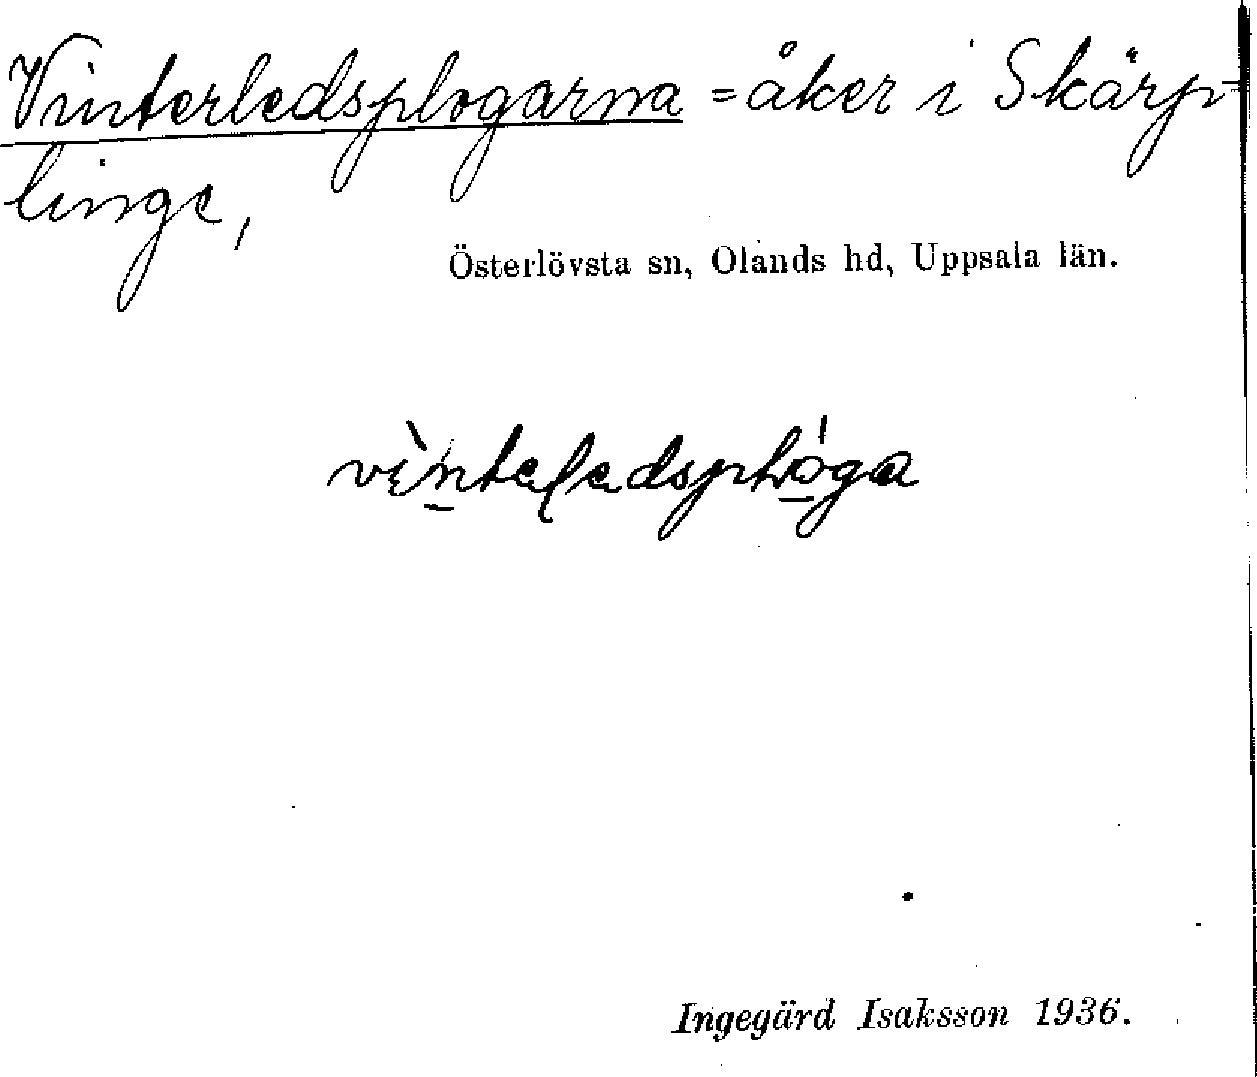 Vinterledsplogarna = åker i Skärp-
linge,
Österlövsta sn, Olands hd, Uppsala län.
Ingegärd Isaksson 1936.